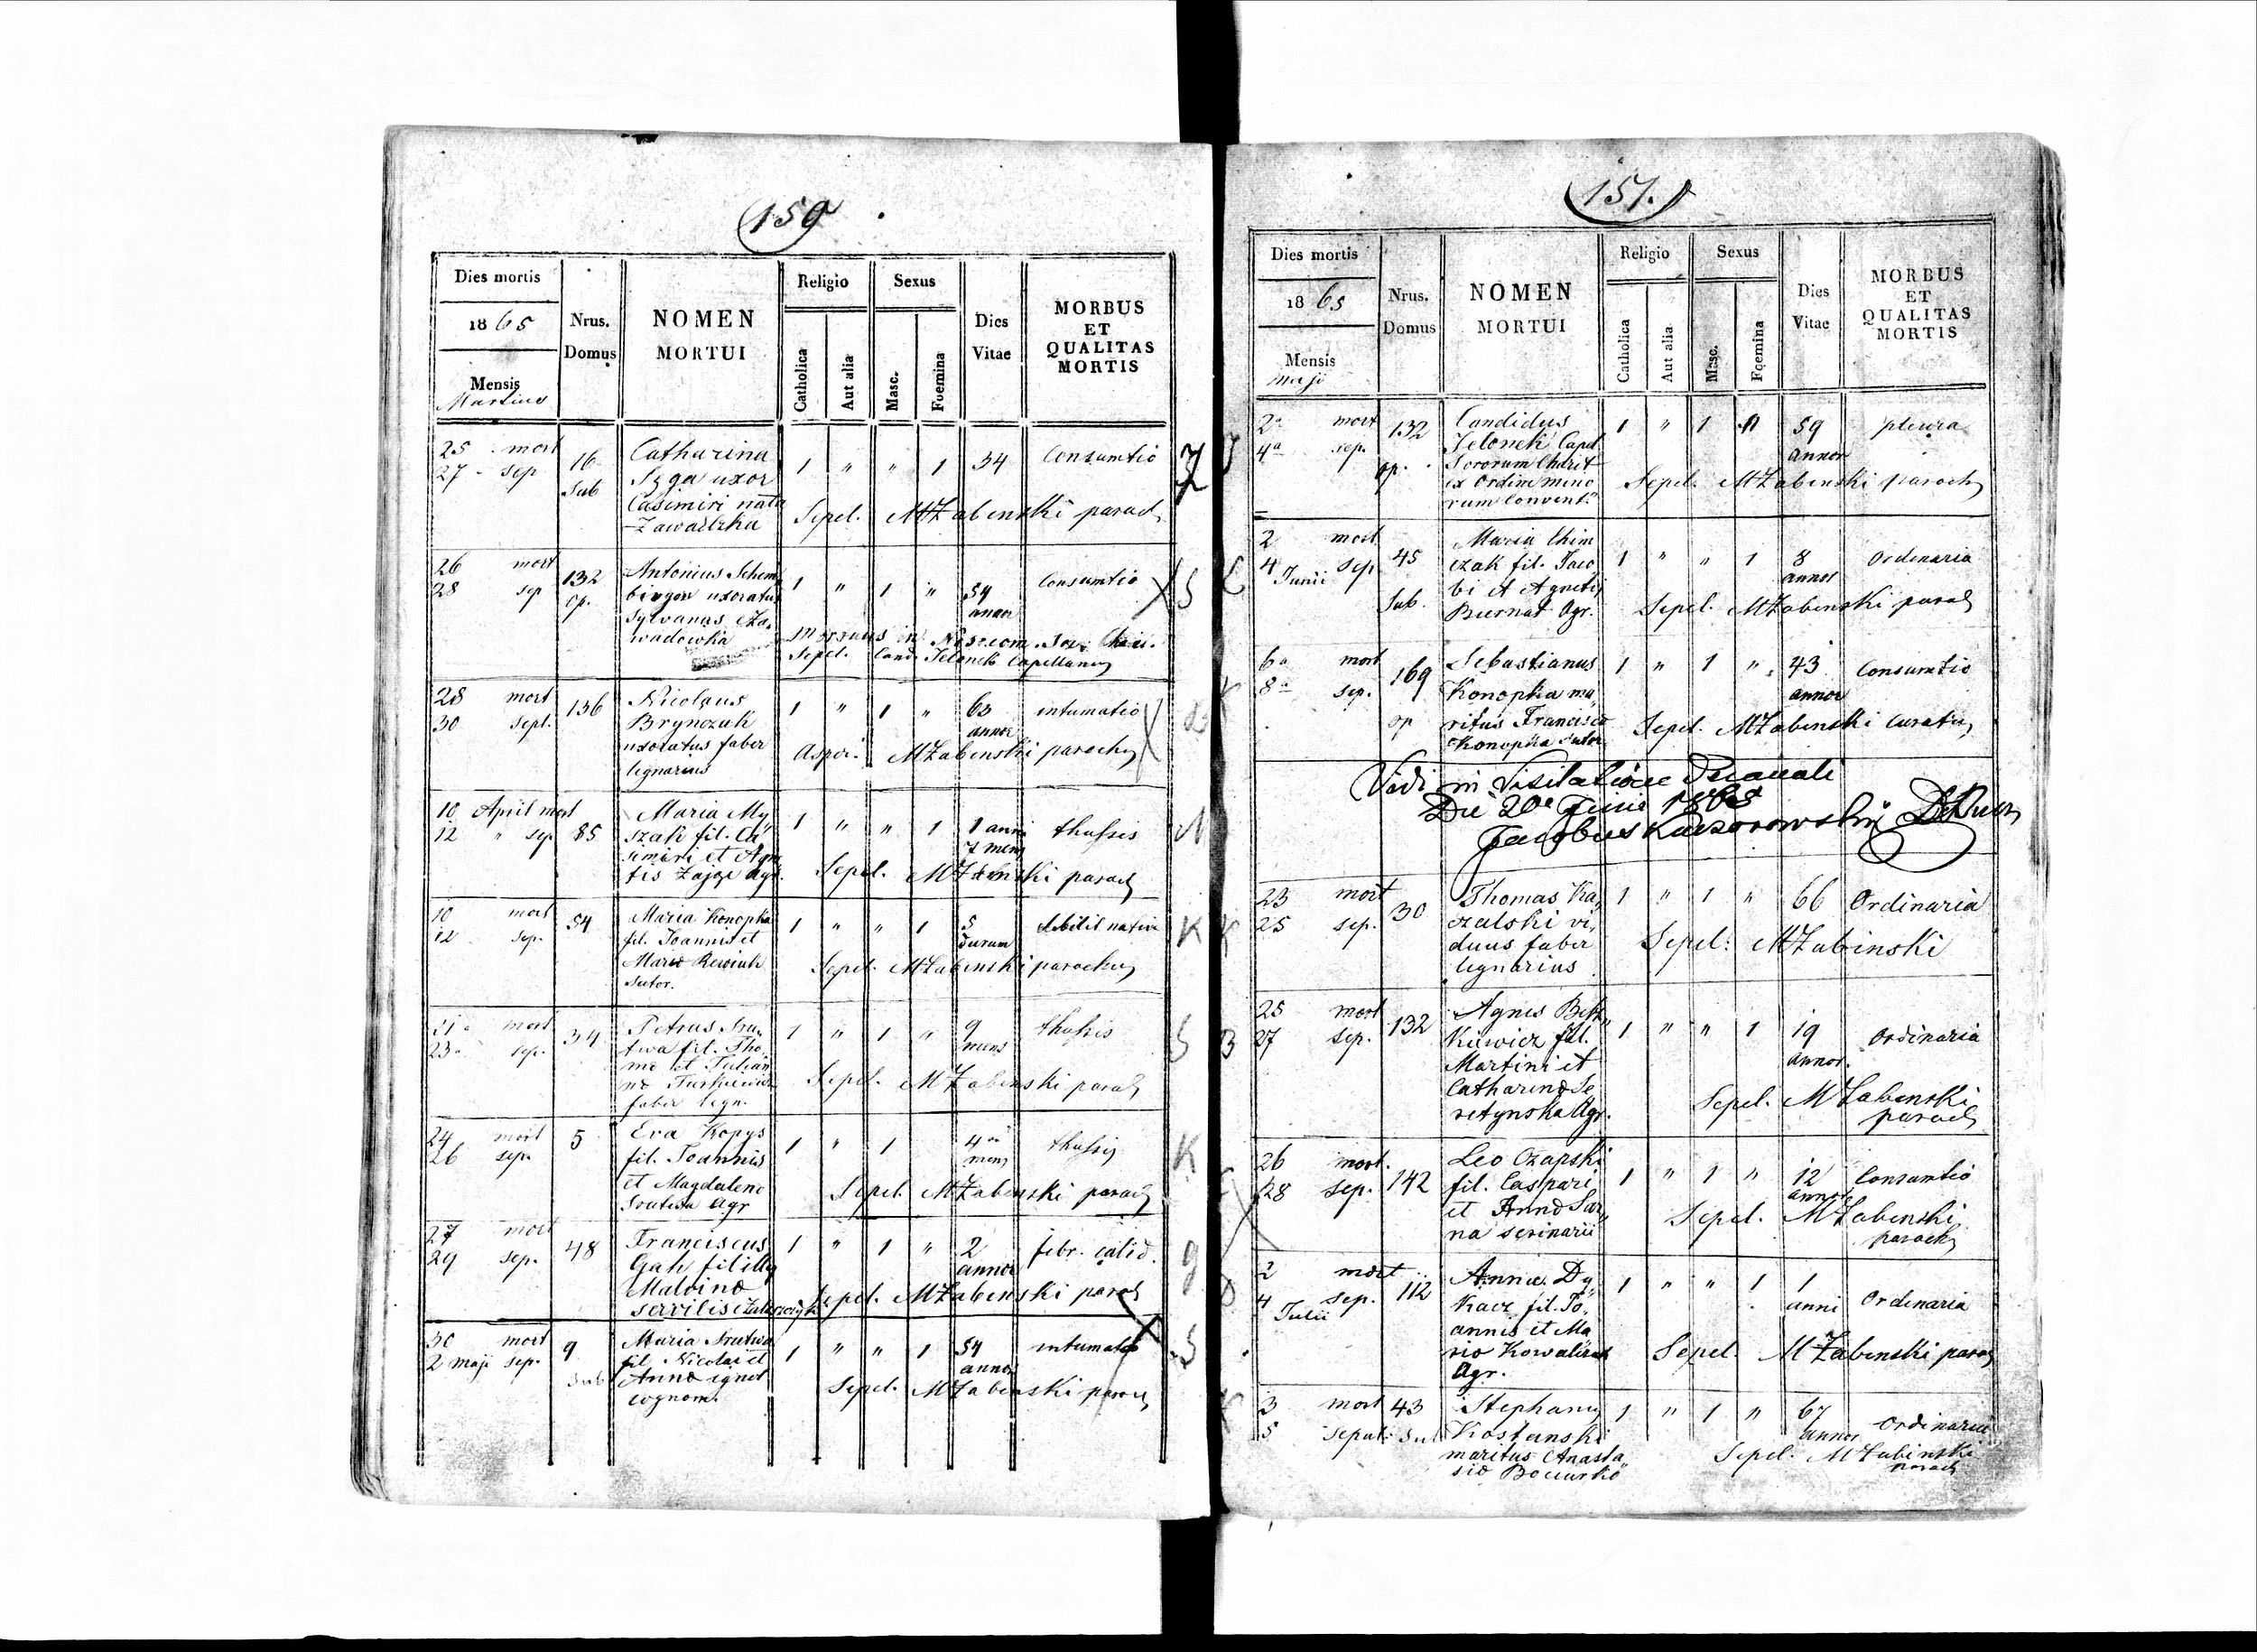 159
Dies mortis
1865
Mensis
Martius
Nrus.
Domus
NOMEN
MORTUI
Religio
Catholica
Aut alia
Sexus
Masc.
Foemina
Dies
Vitae
MORBUS
ET
QUALITAS
MORTIS
25 mort
27 sep
16
Sub
Catharina
Syga uxor
Casimiri nata
Zawadzka
1 " " 1 34 Consumtio
Sepel. MZabenski paroch
26 mort
28 sep
132
op.
Antonius Schem
uxoratus
Sylvanus
1 " 1 " 54
annor
Consumtio
Mortuus in Nosocom. Sor. Char.
Sepel. Cand. Jelonek Capellanus
28 mort
30 sept.
136
Nicolaus
Brynczuk
uxoratus faber
lignarius
1 " 1 " 63
annor
intumatio
Asper. MZabenski parochus
10 April mort
12 " sep
85
Maria My
szak fil. Ca
simiri et Agne
tis Zając Agr.
1 " " 1 1 anni
7 mens
thussis
Sepel. MZabenski paroch
10 mort
12 sep.
54
Maria Konopka
fil. Joannis et
Sutor.
1 " " 1 5
dierum
debilit nativa
Sepel. MZabenski parochus
21a mort
23a sep.
34
Petrus Sru
twa fil. Tho
mae et Julian
nae
faber lign.
1 " 1 " 9
mens
thussis
Sepel. MZabenski paroch
24 mort
26 sep.
5
Eva Kopys
fil. Joannis
et Magdalenae
Agr
1 " 1 4
mens
thussis
Sepel. MZabenski paroch
27 mort
29 sep.
48
Franciscus
Gah fil illeg
Malvinae
servilis
1 " 1 " 2
annor
febr. calid.
Sepel. MZabenski paroch
30 mort
2 maji sep.
9
Sub
Maria Srutwa
fil. Nicolai et
Annae ignot
cognom.
1 " " 1 54
annor
intumatio
Sepel. MZabenski paroch
151.
Dies mortis
1865
Mensis
maji
Nrus.
Domus
NOMEN
MORTUI
Religio
Catholica
Aut alia
Sexus
Masc.
Foemina
Dies
Vitae
MORBUS
ET
QUALITAS
MORTIS
2a mort
4a sep.
132
op.
Candidus
Jelonek Capel
Sororum Charit
ex Ordine mino
rum Convent.
1 " 1 " 59
annor
pleura
Sepel. MZabenski parochus
2 mort
4 Junii sep
45
Sub.
Maria Chim
czak fil. Jaco
bi et Agnetis
Biernat Agr.
1 " " 1 8
annor
Ordinaria
Sepel. MZabenski paroch
6a mort
8a sep.
169
op
Sebastianus
Konopka ma
ritus Francisca
Konopka sutor
1 " 1 " 43
annor
Consumtio
Sepel. MZabenski Curatus
Vidi in Visitatione Decanali
Die 20a Junii 1865
Jacobus Kaczorowski Decan
23 mort
25 sep.
30
Thomas Ka
czalski vi
duus faber
lignarius
1 " 1 " 66 Ordinaria
Sepel: MZabinski
25 mort
27 sep.
132
Agnis
fil.
Martini et
Catharinae Se
retynska Agr.
1 " " 1 19
annor.
Ordinaria
Sepel. MZabenski
paroch
26 mort.
28 sep.
142
Leo Czapski
fil. Caspari
et Annae Sar
na serinarii
1 " 1 " 12
annor
Consumtio
Sepel. MZabenski
paroch
2 mort
4 sep.
Julii
112
Anna Dy
kacz fil. Jo
annis et Ma
riae
Agr.
1 " " 1 1
anni
Ordinaria
Sepel. MZabenski paroch
3 mort
5 sepul:
43
Sub
Stephanus
Kostanski
maritus Anasta
siae
1 " 1 " 67
annor
Ordinaria
Sepel. MZabinski
paroch